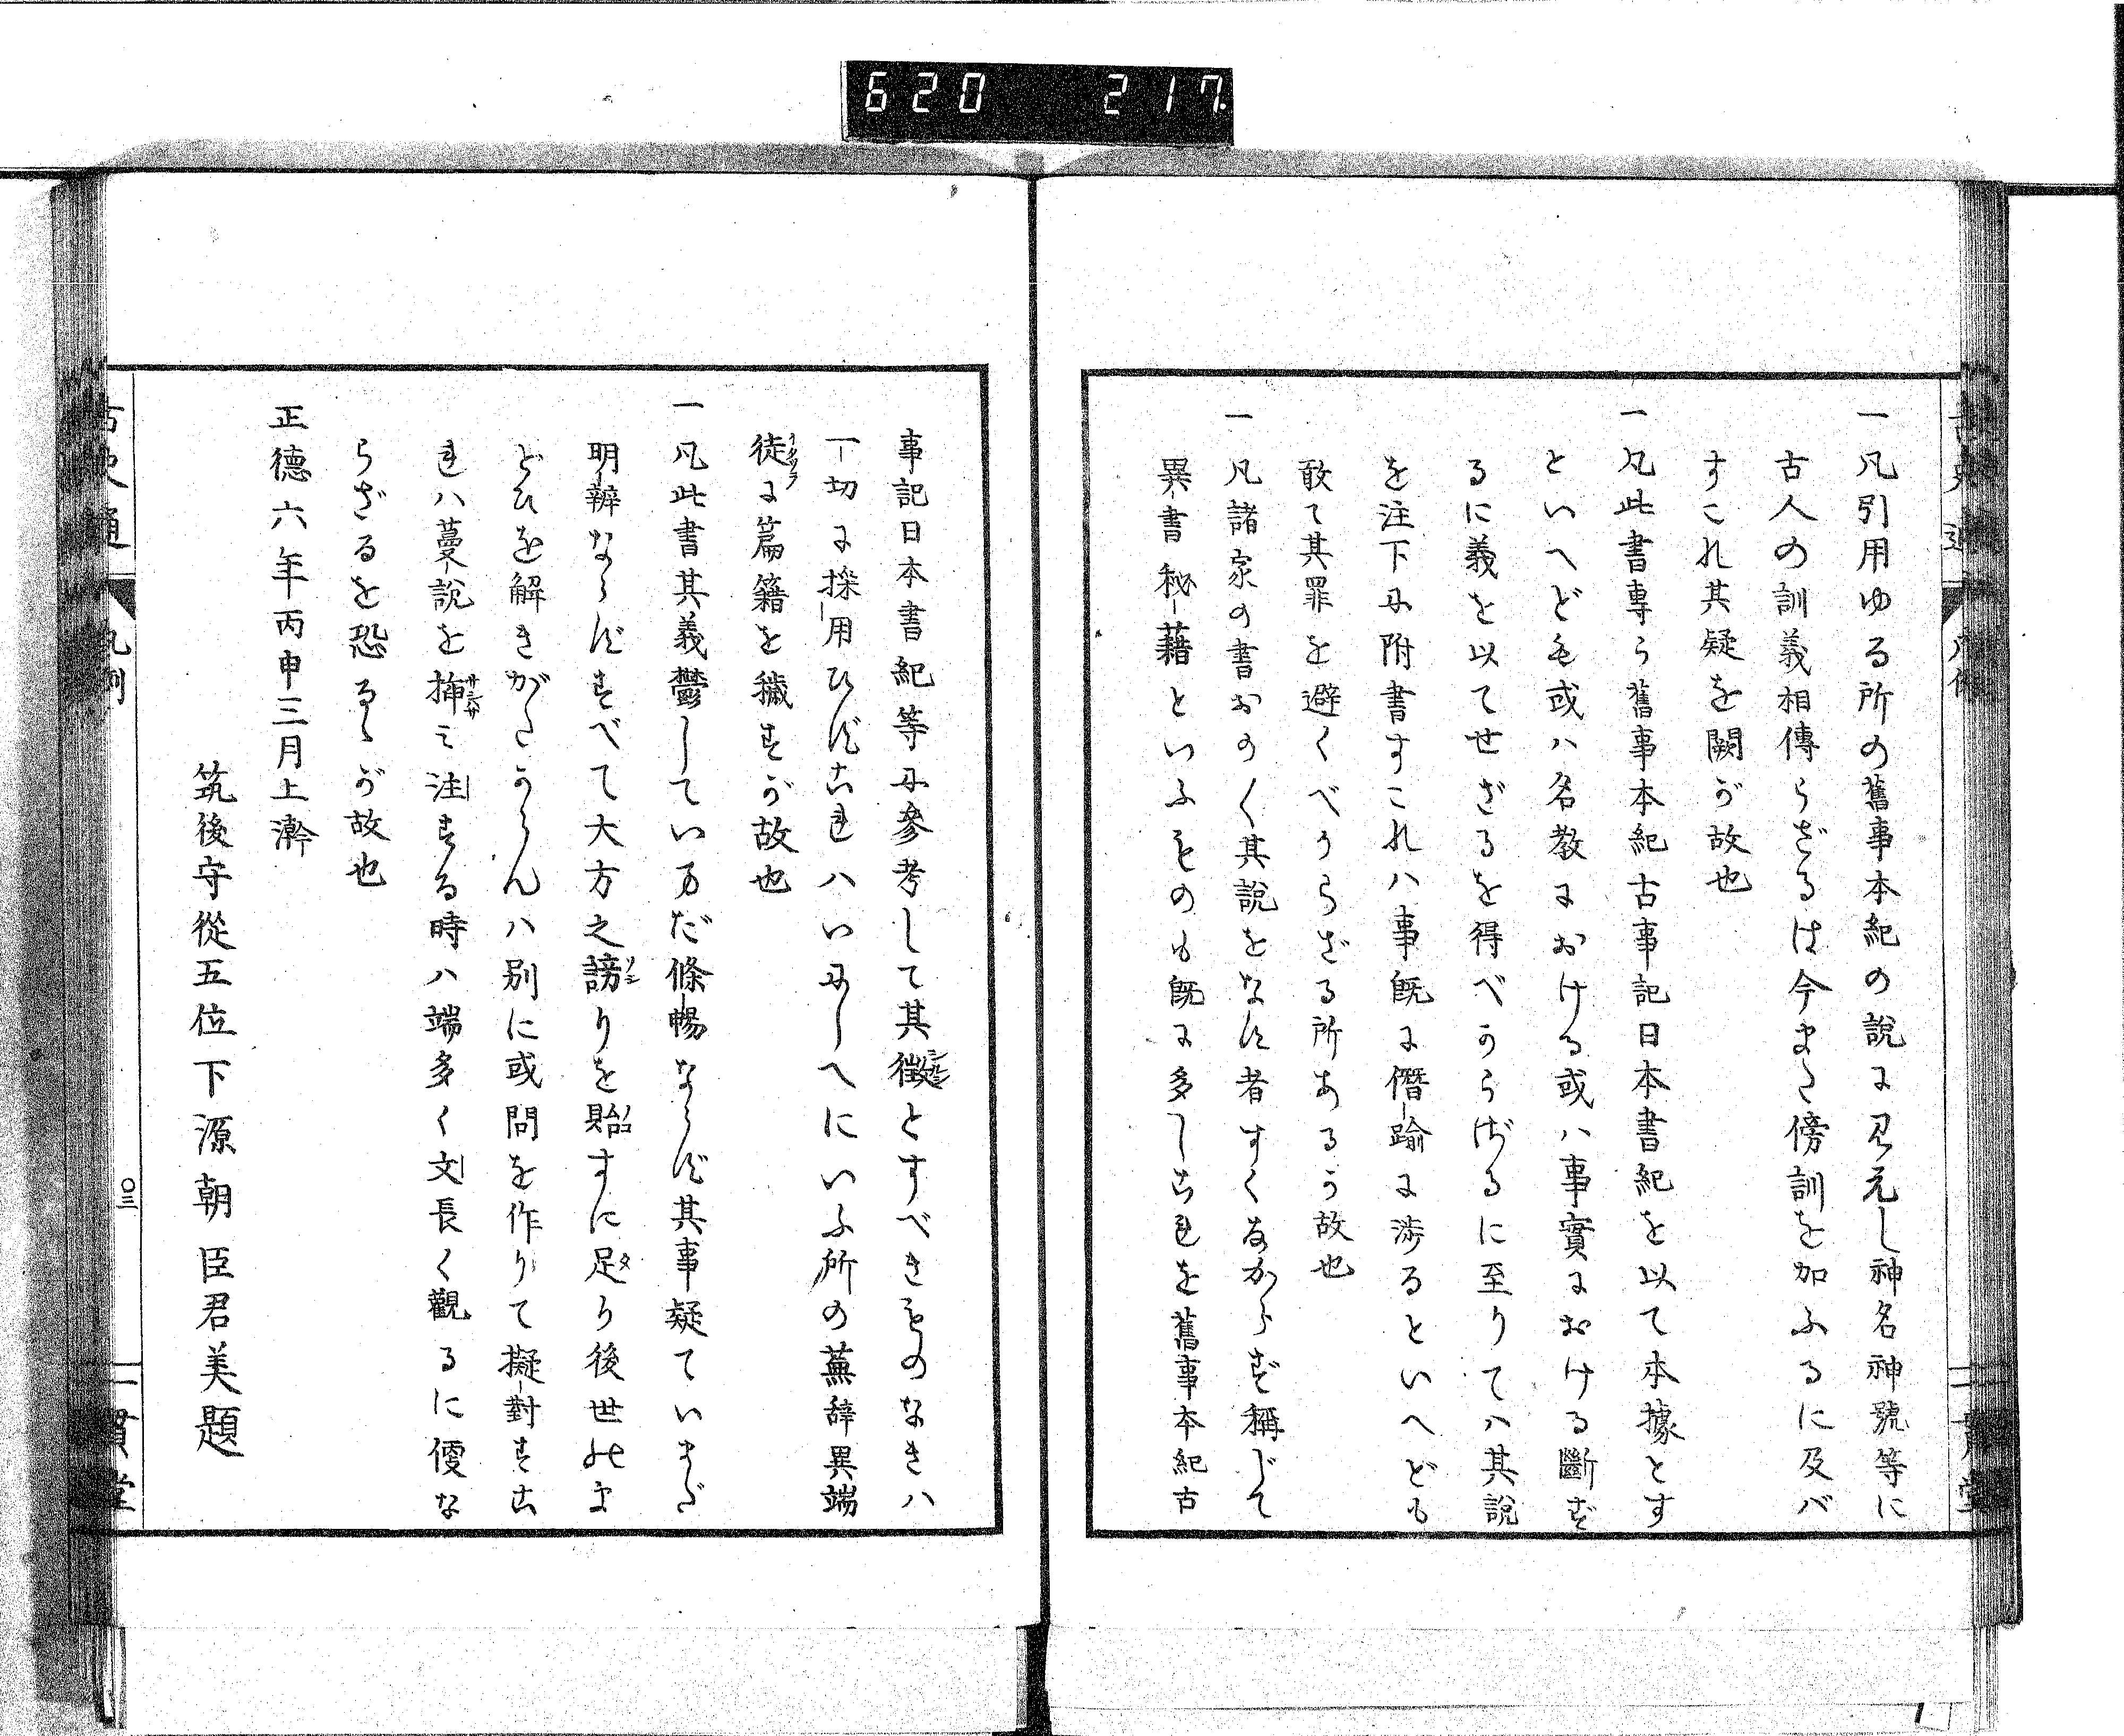 620 217
一凡引用ゆる所の舊事本紀の說に見えし神名神號等に
古人の訓義相傳らざるは今また傍訓を加ふるに及バ
すこれ其疑を闕が故也
一凡此書專ら舊事本紀古事記日本書紀を以て本據とす
といへども或ハ名教における或ハ事實における斷ず
るに義を以てせざるを得べからざるに至りてハ其說
を注下に附書すこれハ事既に僭踰に渉るといへども
敢て其罪を避くべからざる所あるか故也
一凡諸家の書おの〱其說をなす者すくなからず稱じて
異書秘藉といふものも既に多しこれを舊事本紀古
事記日本書紀等に參考して其徵とすべきものなきハ
一切に採用ひずこれハいにしへにいふ所の蕪辞異端
徒に篇籍を穢すが故也
一凡此書其義鬱していまだ條暢ならず其事疑ていまだ
明辨ならずすべて大方之謗りを貽すに足り後世のま
どひを解きがたからんハ別に或問を作りて擬對すこ
れハ蔓說を揷ミ注する時ハ端多く文長く觀るに便な
らざるを恐るゝが故也
正德六年丙申三月上澣
筑後守從五位下源朝臣君美題
古史通 凡例 〇三 一貫堂